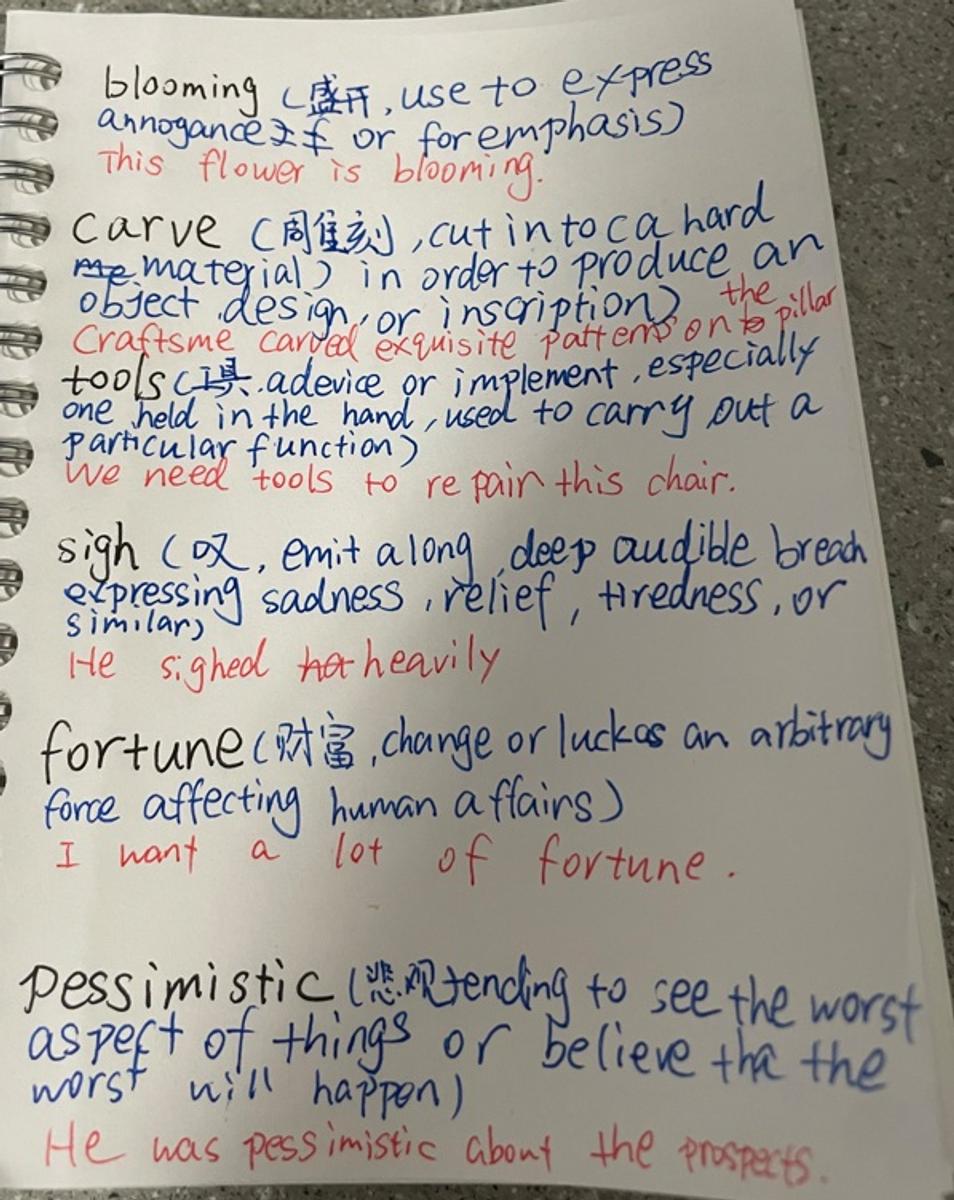 blooming (盛开, use to express
annogance or for emphasis)
This flower is blooming.
carve (周隹刻), cut in to ca hard
me material) in order to produce an
object, design, or inscription)
Craftsme carved exquisite pattens on to the pillar
tools (工具. adevice or implement, especially
one held in the hand, used to carry out a
particular function)
We need tools to repair this chair.
sigh (叹, emit along, deep audible breach
expressing sadness, relief, tiredness, or
similar)
He sighed hat heavily
fortune (财富, change or luckas an arbitrary
force affecting human affairs)
I want a lot of fortune.
pessimistic (悲观 tending to see the worst
aspect of things or believe tha the
worst will happen)
He was pessimistic about the prospects.